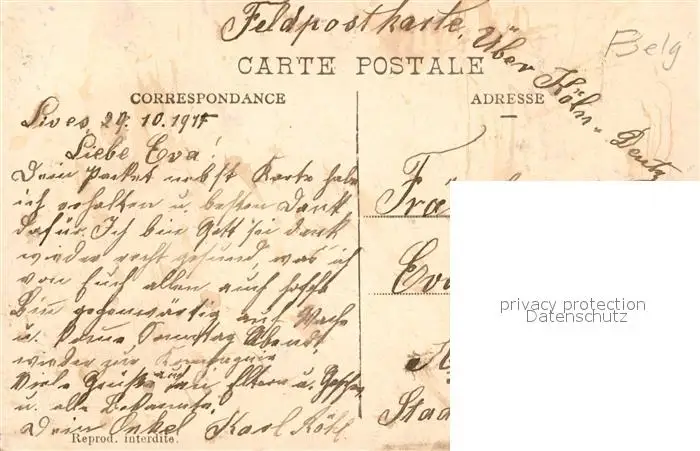 Feldpostkarte.
Über Köln-Deutz
Belg
CARTE POSTALE
CORRESPONDANCE
ADRESSE
Lives, 29. 10. 1915
Liebe Eva!
Dein Packet nebst Karte habe
ich erhalten u. besten Dank
dafür. Ich bin Gott sei dank
wieder recht gesund, was ich
von Euch allen auch hoffe
Bin gegenwärtig auf Wache
u. komme Sonntag Abend
wieder zur Kompagnie
Viele Grüße auch an Eltern u. Geschw.
u. alle Bekannte.
Dein Onkel Karl Röhl
Reprod. interdite.
Frä
Eva
Staa
privacy protection
Datenschutz